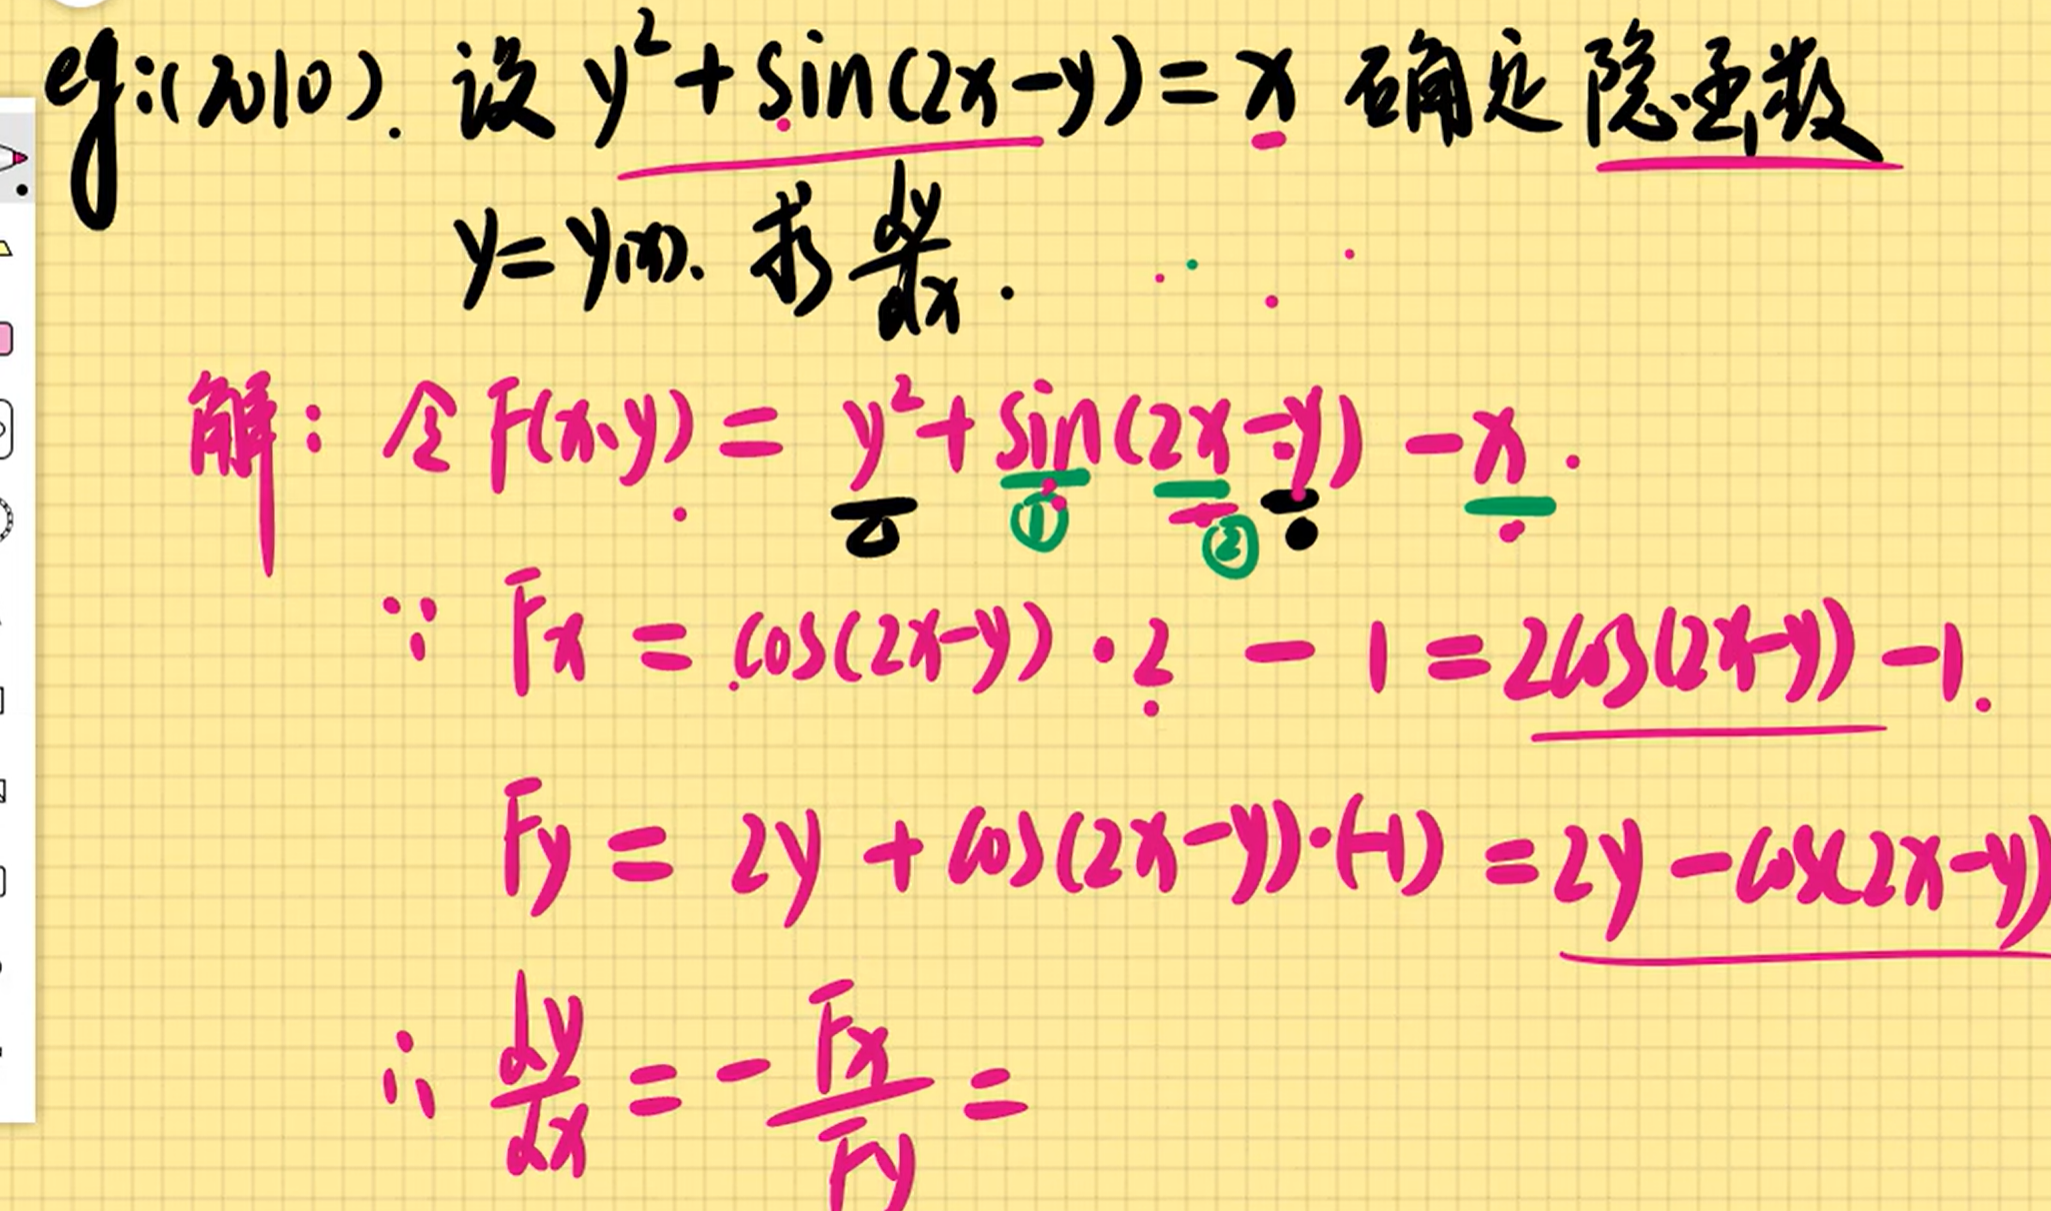 eg:(2010). 设 y²+sin(2x-y)=x 确定隐函数
y=y(x). 求 dy/dx.
解: 令 F(x,y) = y²+sin(2x-y) - x.
① ②
∵ Fx = cos(2x-y)·2 - 1 = 2cos(2x-y) - 1.
Fy = 2y + cos(2x-y)·(-1) = 2y - cos(2x-y)
∴ dy/dx = - Fx/Fy =